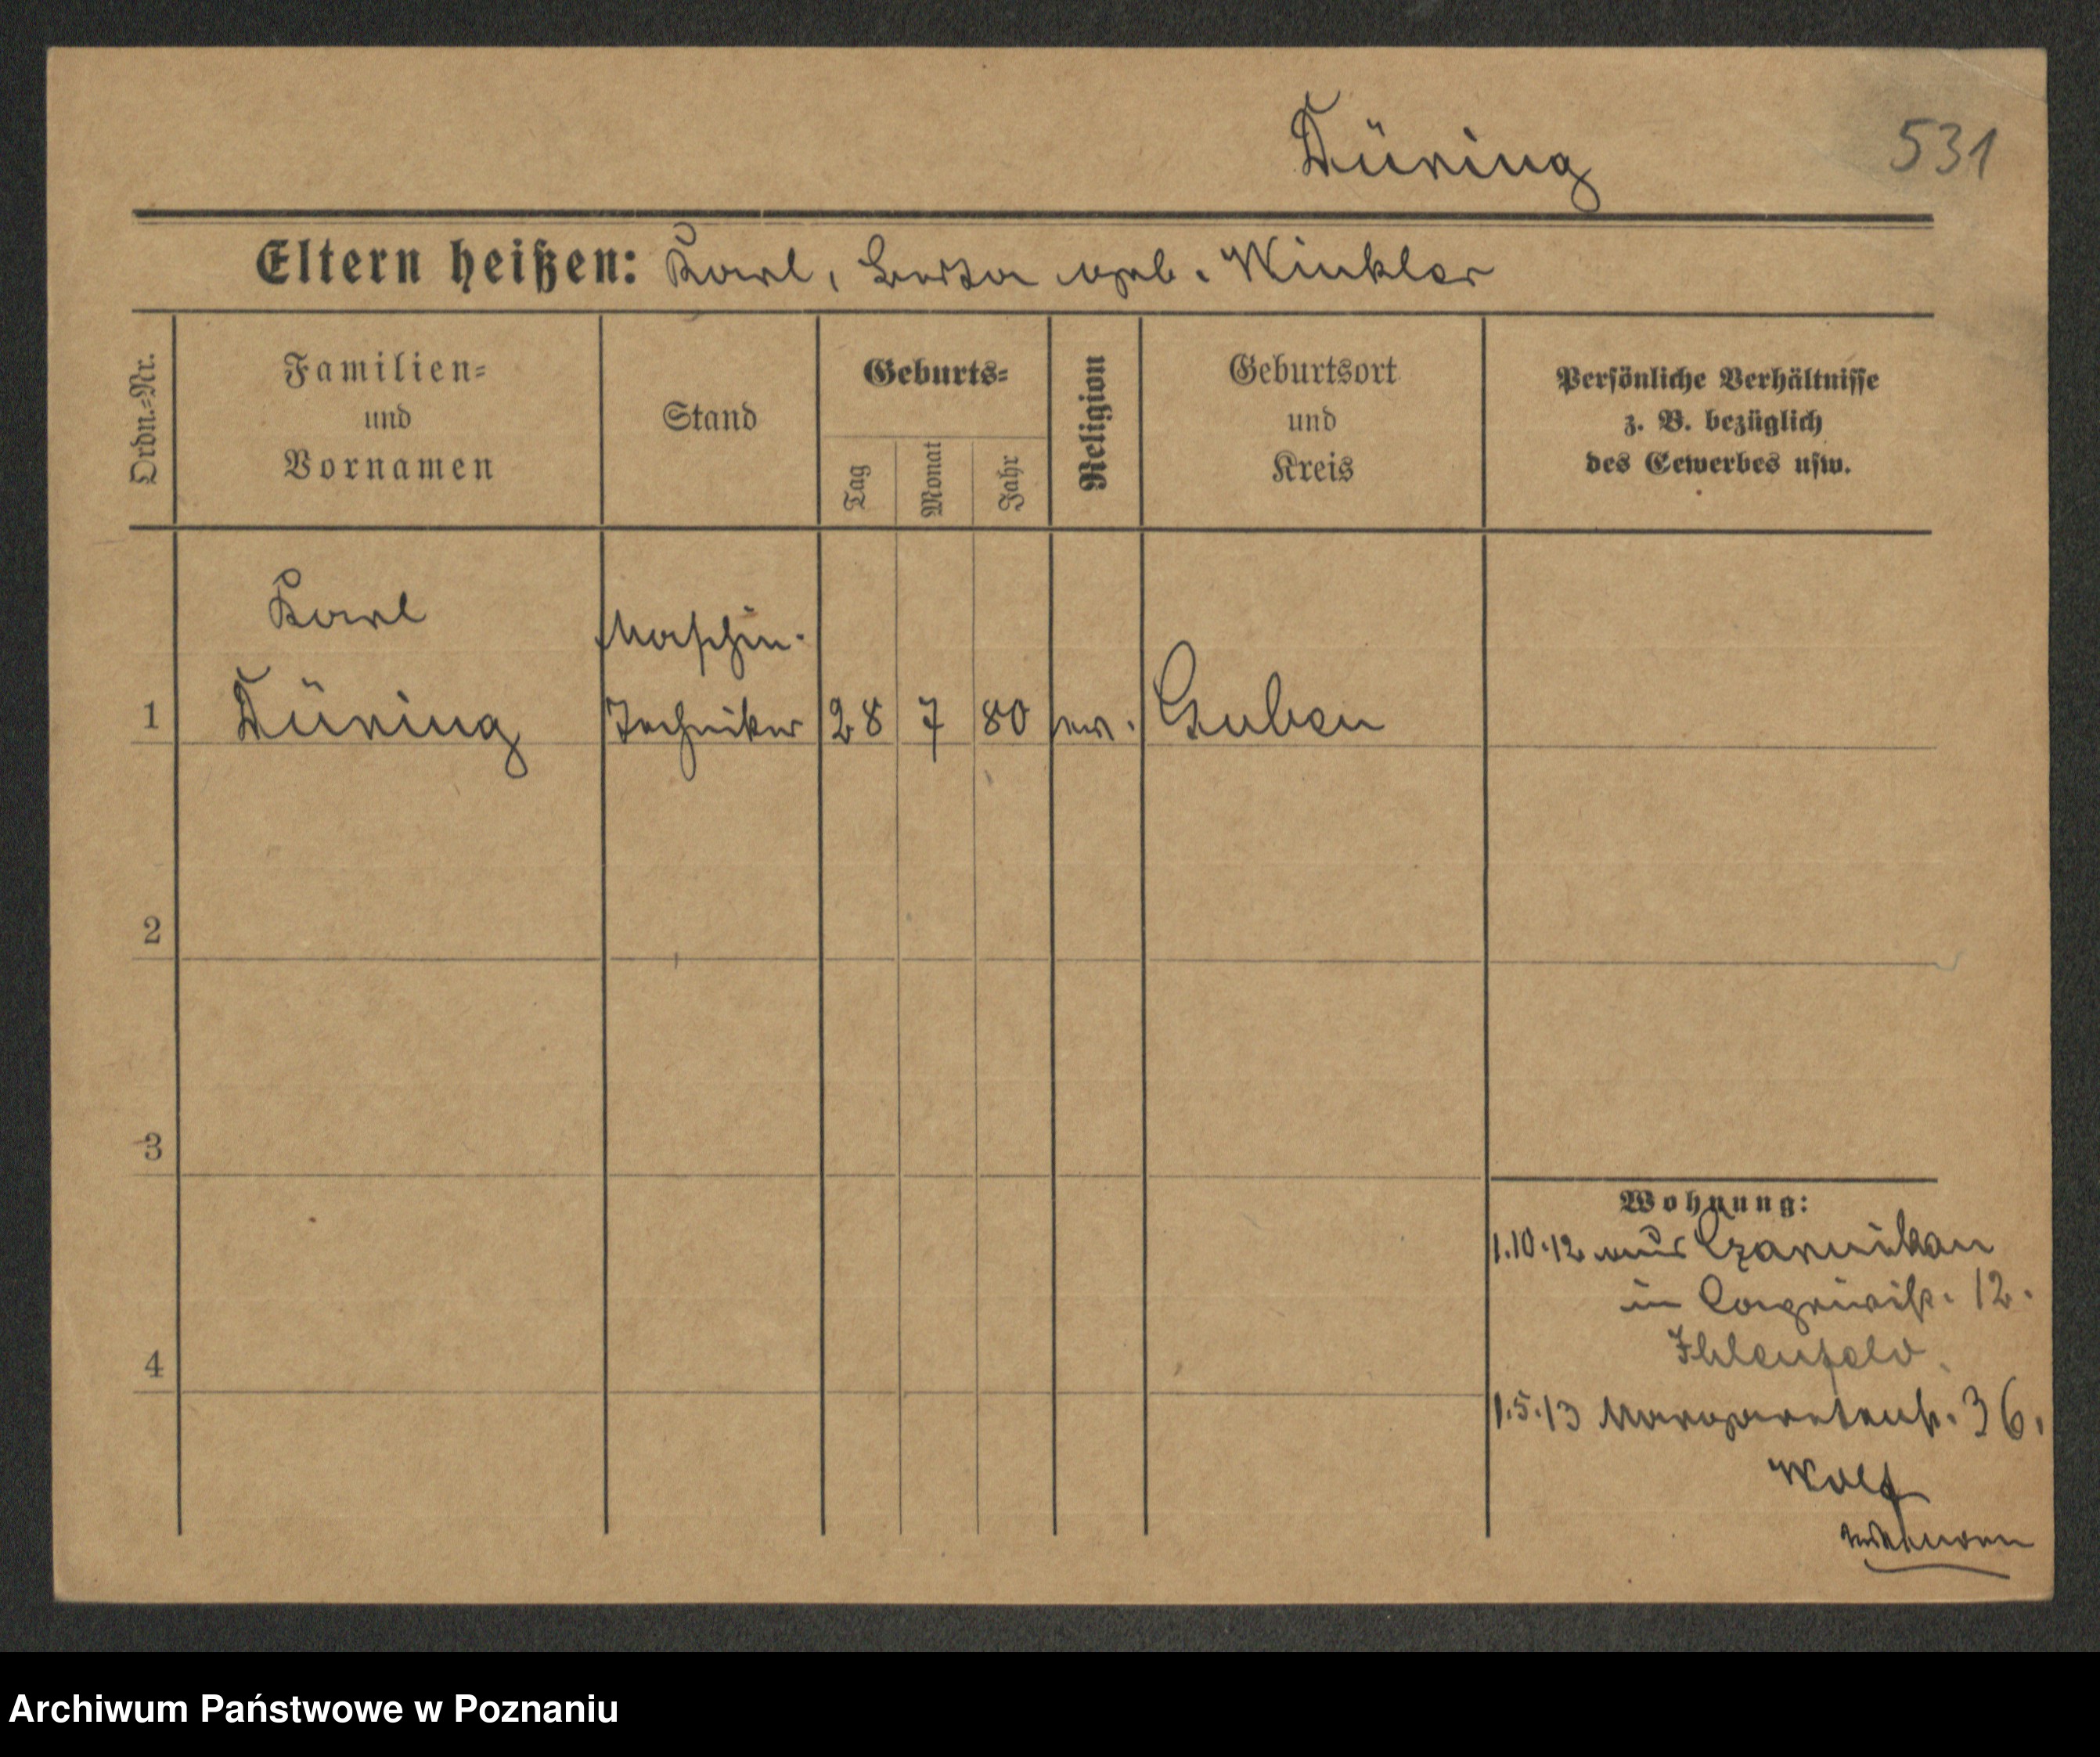 Düring
531
Eltern heißen: Karl, Berta geb. Winkler
Ordn.=Nr.
Familien=
und
Vornamen
Stand
Geburts=
Tag
Monat
Jahr
Religion
Geburtsort
und
Kreis
Persönliche Verhältnisse
z. B. bezüglich
des Gewerbes usw.
Karl
Maschin.
1 Düring Techniker 28 7 80 ev. Guben
2
3
4
Wohnung:
1.10.12 aus Czarnikau
in 12.
Ihlenfeld.
1.5.13 Margaretenstr. 36.
Wolf
Archiwum Państwowe w Poznaniu